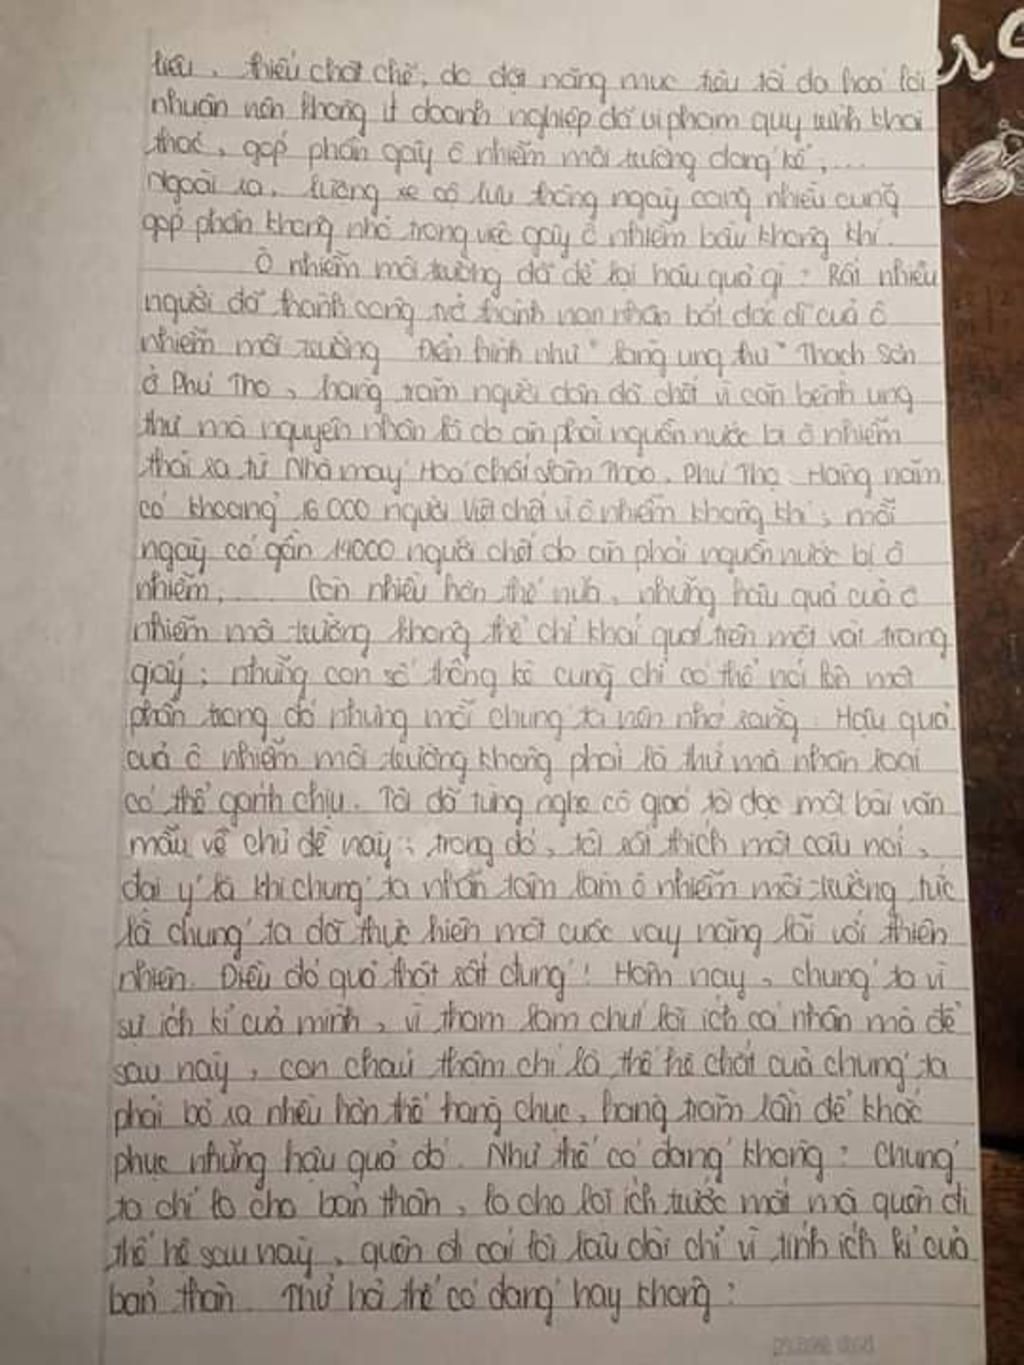 liệu, thiếu chặt chẽ, do đặt nặng mục tiêu tối đa hoá lợi
nhuận nên không ít doanh nghiệp đã vi phạm quy trình khai
thác, góp phần gây ô nhiễm môi trường đáng kể,...
Ngoài ra, lượng xe cộ lưu thông ngày càng nhiều cũng
góp phần không nhỏ trong việc gây ô nhiễm bầu không khí.
Ô nhiễm môi trường đã để lại hậu quả gì? Rất nhiều
người đã thành công trở thành nạn nhân bất đắc dĩ của ô
nhiễm môi trường. Điển hình như "làng ung thư" Thạch Sơn
ở Phú Thọ, hàng trăm người dân đã chết vì căn bệnh ung
thư mà nguyên nhân là do ăn phải nguồn nước bị ô nhiễm
thải ra từ Nhà máy Hoá chất Lâm Thao, Phú Thọ. Hàng năm
có khoảng 16.000 người Việt chết vì ô nhiễm không khí, mỗi
ngày có gần 14000 người chết do ăn phải nguồn nước bị ô
nhiễm,... Còn nhiều hơn thế nữa, những hậu quả của ô
nhiễm môi trường không thể chỉ khái quát trên một vài trang
giấy; những con số thống kê cũng chỉ có thể nói lên một
phần trong đó nhưng mỗi chúng ta nên nhớ rằng: Hậu quả
của ô nhiễm môi trường không phải là thứ mà nhân loại
có thể gánh chịu. Tôi đã từng nghe cô giáo tôi đọc một bài văn
mẫu về chủ đề này; trong đó, tôi rất thích một câu nói,
đại ý là khi chúng ta nhẫn tâm làm ô nhiễm môi trường, tức
là chúng ta đã thực hiện một cuộc vay nặng lãi với thiên
nhiên. Điều đó quả thật rất đúng! Hôm nay, chúng ta vì
sự ích kỉ của mình, vì tham lam chút lợi ích cá nhân mà để
sau này, con cháu thậm chí là thế hệ chắt của chúng ta
phải bỏ ra nhiều hơn thế hàng chục, hàng trăm lần để khắc
phục những hậu quả đó. Như thế có đáng không? Chúng
ta chỉ lo cho bản thân, lo cho lợi ích trước mắt mà quên đi
thế hệ sau này, quên đi cái lợi lâu dài chỉ vì tính ích kỉ của
bản thân. Thử hỏi thế có đáng hay không?